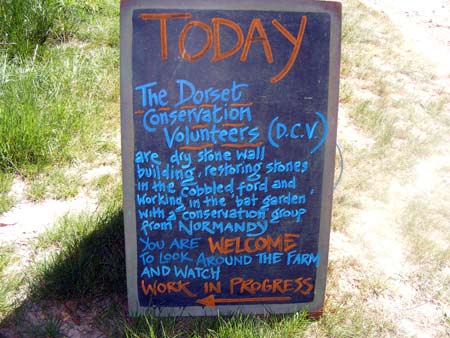 TODAY
The Dorset
Conservation
Volunteers (D.C.V)
are dry stone wall
building, restoring stones
in the cobbled ford and
working in the 'bat garden'
with a conservation group
from NORMANDY
YOU ARE WELCOME
TO LOOK AROUND THE FARM
AND WATCH
WORK IN PROGRESS